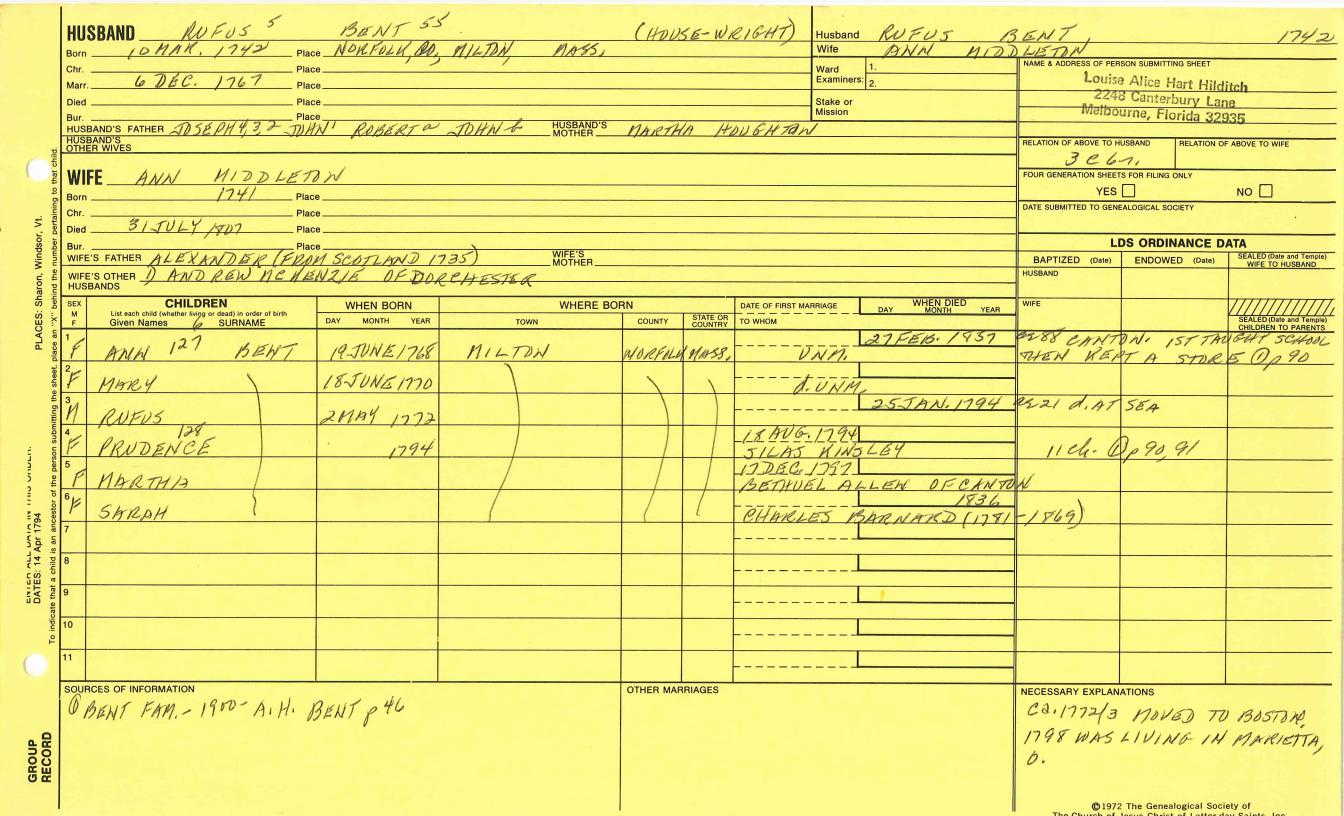 HUSBAND RUFUS 5 BENT 55 (HOUSE-WRIGHT)
Born 10 MAR. 1742 Place NORFOLK, CO, MILTON, MASS,
Chr. Place
Marr. 6 DEC. 1767 Place
Died Place
Bur. Place
HUSBAND'S FATHER JOSEPH 4,3,2 JOHN 1 ROBERT a JOHN b HUSBAND'S MOTHER MARTHA HOUGHTON
HUSBAND'S OTHER WIVES
WIFE ANN MIDDLETON
Born 1741 Place
Chr. Place
Died 31 JULY 1807 Place
Bur. Place
WIFE'S FATHER ALEXANDER (FROM SCOTLAND 1735) WIFE'S MOTHER
WIFE'S OTHER HUSBANDS D ANDREW MCKENZIE OF DORCHESTER
Husband RUFUS BENT, 1742
Wife ANN MIDDLETON
Ward Examiners: 1.
2.
Stake or Mission
NAME & ADDRESS OF PERSON SUBMITTING SHEET
Louise Alice Hart Hilditch
2248 Canterbury Lane
Melbourne, Florida 32935
RELATION OF ABOVE TO HUSBAND RELATION OF ABOVE TO WIFE
3 C 6 r.
FOUR GENERATION SHEETS FOR FILING ONLY
YES NO
DATE SUBMITTED TO GENEALOGICAL SOCIETY
LDS ORDINANCE DATA
BAPTIZED (Date) ENDOWED (Date) SEALED (Date and Temple) WIFE TO HUSBAND
HUSBAND
WIFE
SEALED (Date and Temple) CHILDREN TO PARENTS
SEX M F
CHILDREN
List each child (whether living or dead) in order of birth
Given Names 6 SURNAME
WHEN BORN
DAY MONTH YEAR
WHERE BORN
TOWN COUNTY STATE OR COUNTRY
DATE OF FIRST MARRIAGE
TO WHOM
WHEN DIED
DAY MONTH YEAR
1 F ANN 127 BENT 19 JUNE 1768 MILTON NORFOLK MASS, UNM. 27 FEB. 1857 æ88 CANTON. 1ST TAUGHT SCHOOL
THEN KEPT A STORE ① p 90
2 F MARY 18 JUNE 1770 d. UNM.
3 M RUFUS 2 MAY 1772 25 JAN. 1794 æ21 d. AT SEA
4 F PRUDENCE 128 1794 18 AUG. 1794
SILAS KINSLEY 11 ch. ① p 90, 91
5 F MARTHA 17 DEC. 1797
BETHUEL ALLEN OF CANTON
6 F SARAH 1836
CHARLES BARNARD (1781-1869)
7
8
9
10
11
SOURCES OF INFORMATION
① BENT FAM. - 1900 - A.H. BENT p 46
OTHER MARRIAGES
NECESSARY EXPLANATIONS
Ca. 1772/3 MOVED TO BOSTON,
1798 WAS LIVING IN MARIETTA,
O.
©1972 The Genealogical Society of
The Church of Jesus Christ of Latter-day Saints, Inc.
PLACES: Sharon, Windsor, Vt.
ENTER ALL DATA IN THIS ORDER:
DATES: 14 Apr 1794
To indicate that a child is an ancestor of the person submitting the sheet, place an "X" behind the number pertaining to that child.
GROUP RECORD